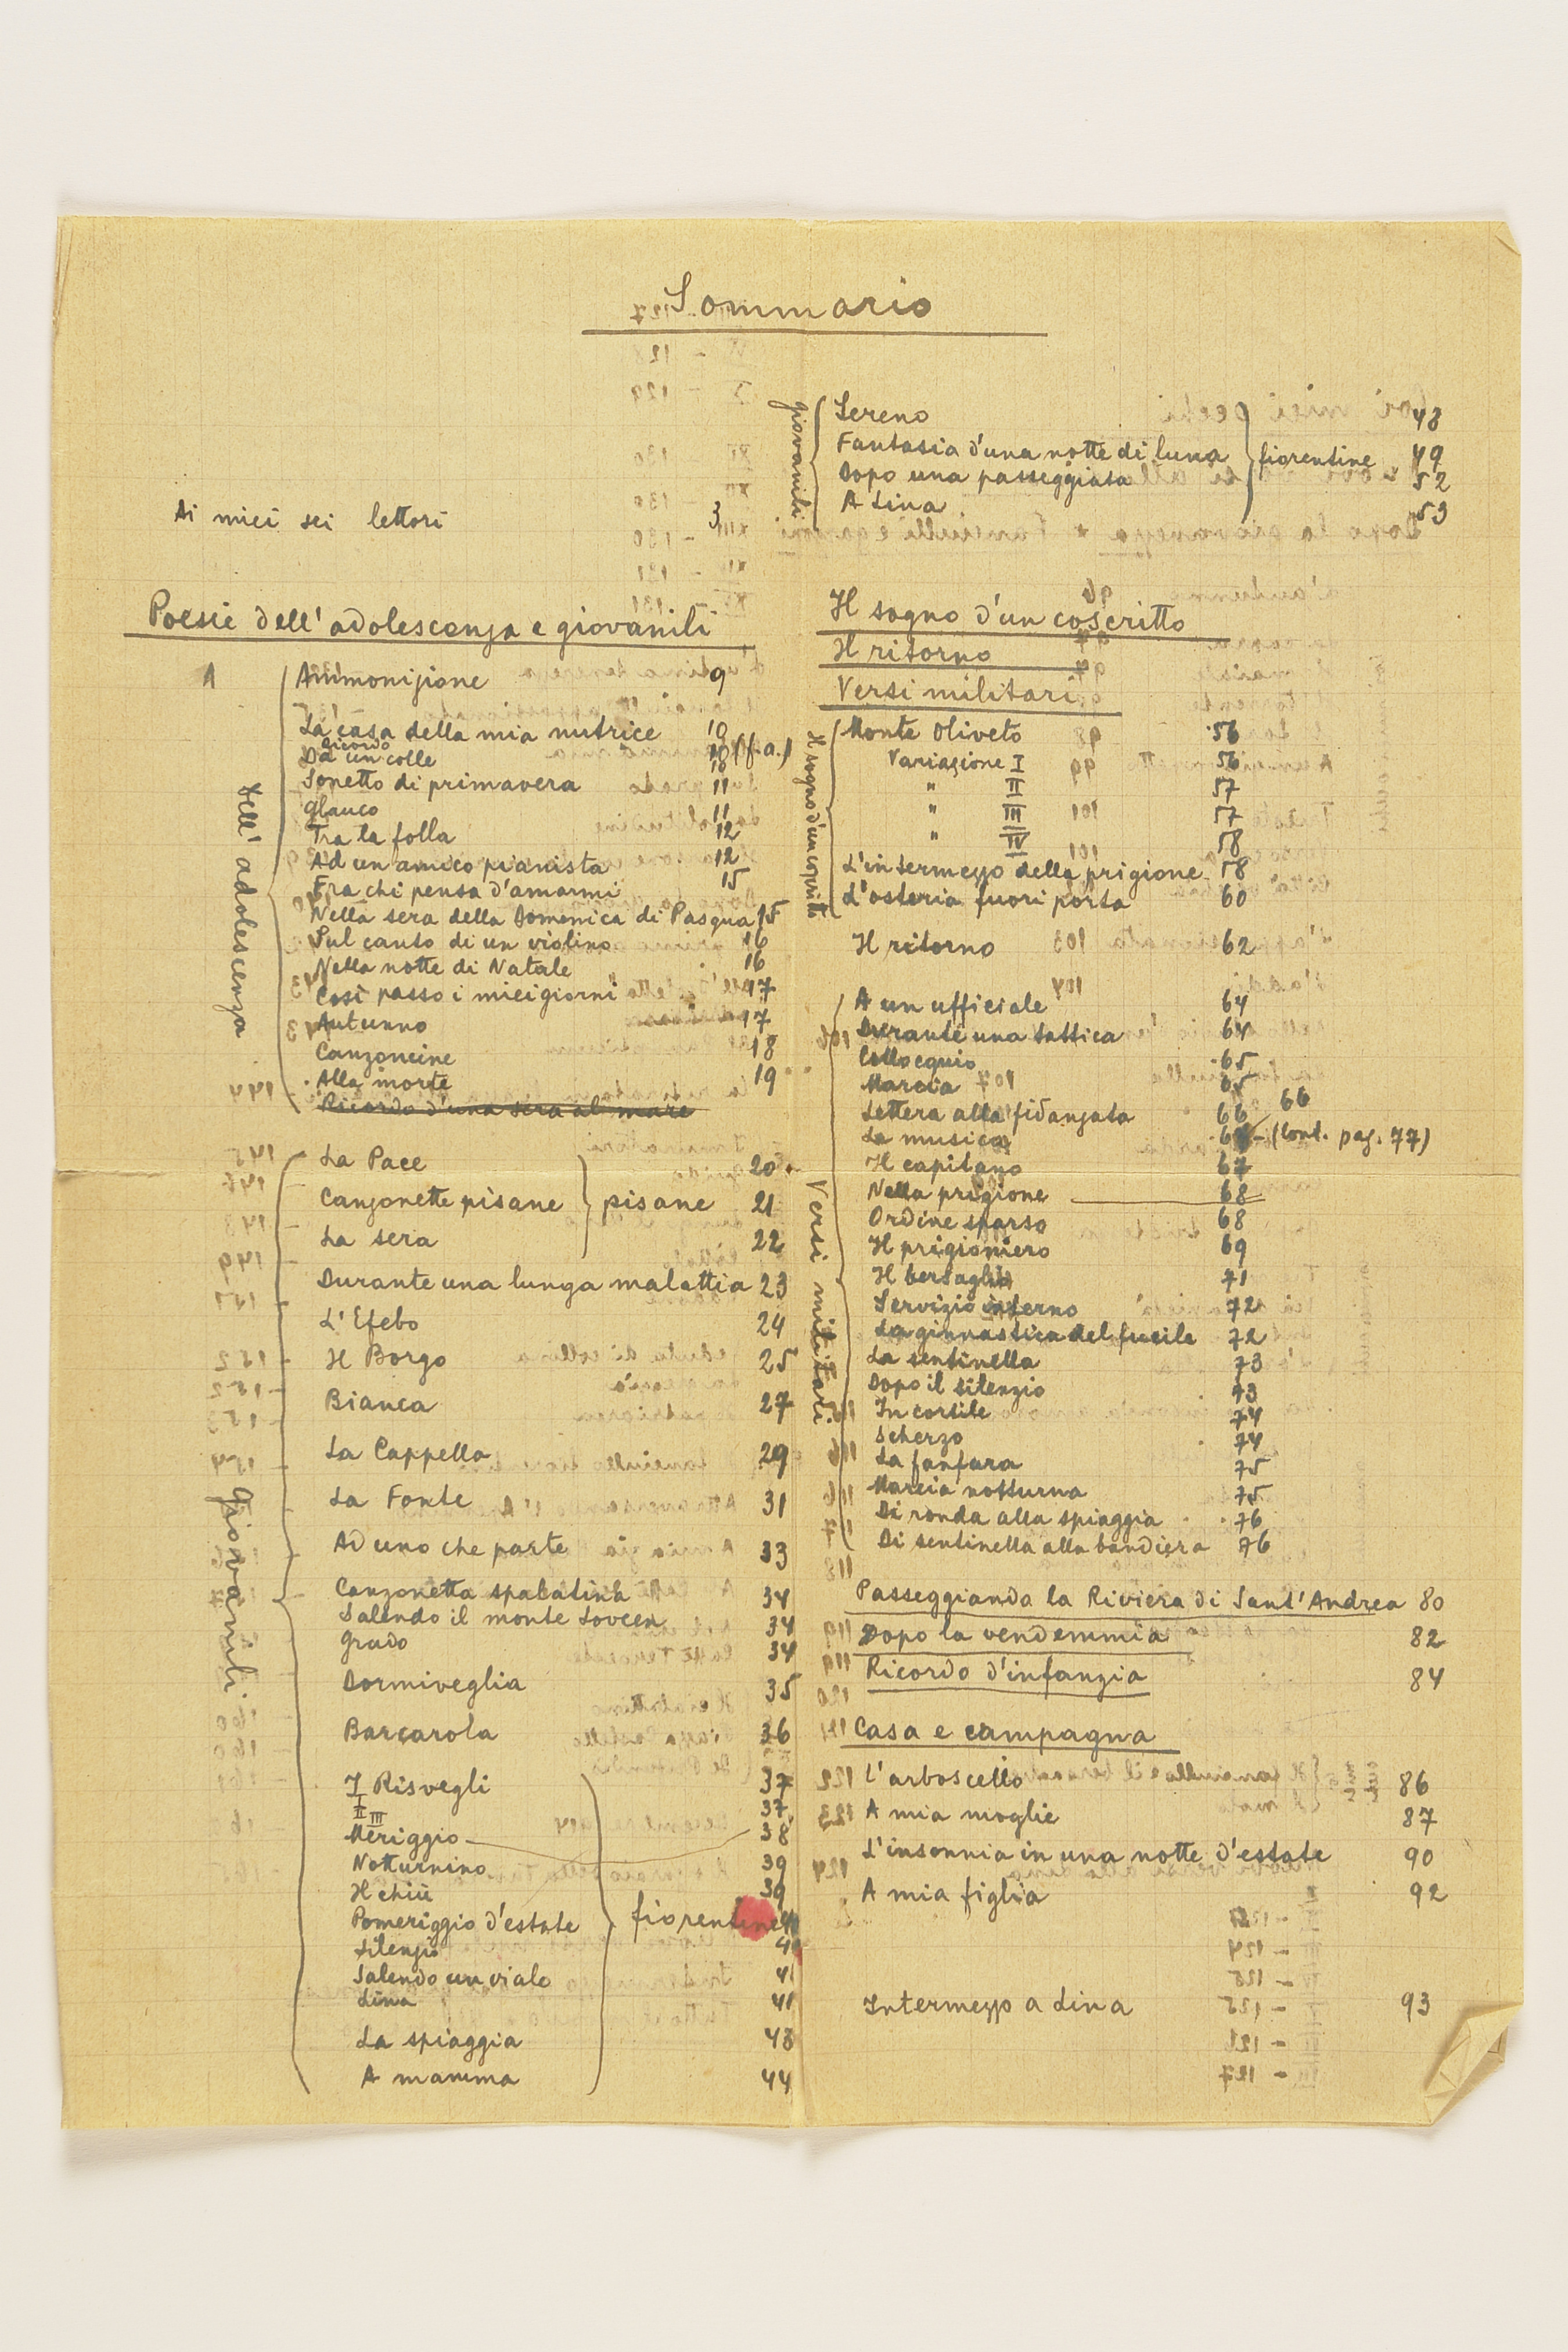 Sommario
Ai miei sei lettori 3
Poesie dell'adolescenza e giovanili
A
dell' adolescenza
Ammonizione 9
La casa della mia nutrice 10
ricordo
Da un colle 10 (f.a.)
Sonetto di primavera 11
Glauco 11
Tra la folla 12
Ad un amico pianista 12
Fra chi pensa d'amarmi 15
Nella sera della Domenica di Pasqua 15
Sul canto di un violino 16
Nella notte di Natale 16
Così passo i miei giorni 17
Autunno 17
Canzoncine 18
Alla morte 19
Ricordo d'una sera al mare
giovanili
La Pace 20
Canzonette pisane } pisane 21
La sera 22
Durante una lunga malattia 23
L'Efebo 24
Il Borgo 25
Bianca 27
La Cappella 29
La Fonte 31
Ad uno che parte 33
Canzonetta spalatina 34
Salendo il monte Lovcen 34
Grado 34
Dormiveglia 35
Barcarola 36
I Risvegli 37
I
II III 37
Meriggio 38
Notturnino 39
Il chiù 39
Pomeriggio d'estate } fiorentine
Silenzio
Salendo un viale 41
Lina 41
La spiaggia 43
A mamma 44
giovanili
Sereno 48
Fantasia d'una notte di luna } fiorentine 49
Dopo una passeggiata 52
A Lina 53
Il sogno d'un coscritto
Il ritorno
Versi militari
Il sogno d'un coscritto
Monte Oliveto 56
Variazione I 56
" II 57
" III 57
" IV 58
L'intermezzo della prigione 58
L'osteria fuori porta 60
Il ritorno 62
Versi militari
A un ufficiale 64
Durante una tattica 64
Colloquio 65
Marcia 65
Lettera alla fidanzata 66 66
La musica - (Cont. pag. 77)
Il capitano 67
Nella prigione 68
Ordine sparso 68
Il prigioniero 69
Il bersaglio 71
Servizio interno 72
La ginnastica del fucile 72
La sentinella 73
Dopo il silenzio 73
In cortile 74
Scherzo 74
La fanfara 75
Marcia notturna 75
Di ronda alla spiaggia 76
Di sentinella alla bandiera 76
Passeggiando la Riviera di Sant'Andrea 80
Dopo la vendemmia 82
Ricordo d'infanzia 84
Casa e campagna
L'arboscello 86
A mia moglie 87
L'insonnia in una notte d'estate 90
A mia figlia 92
Intermezzo a Lina 93